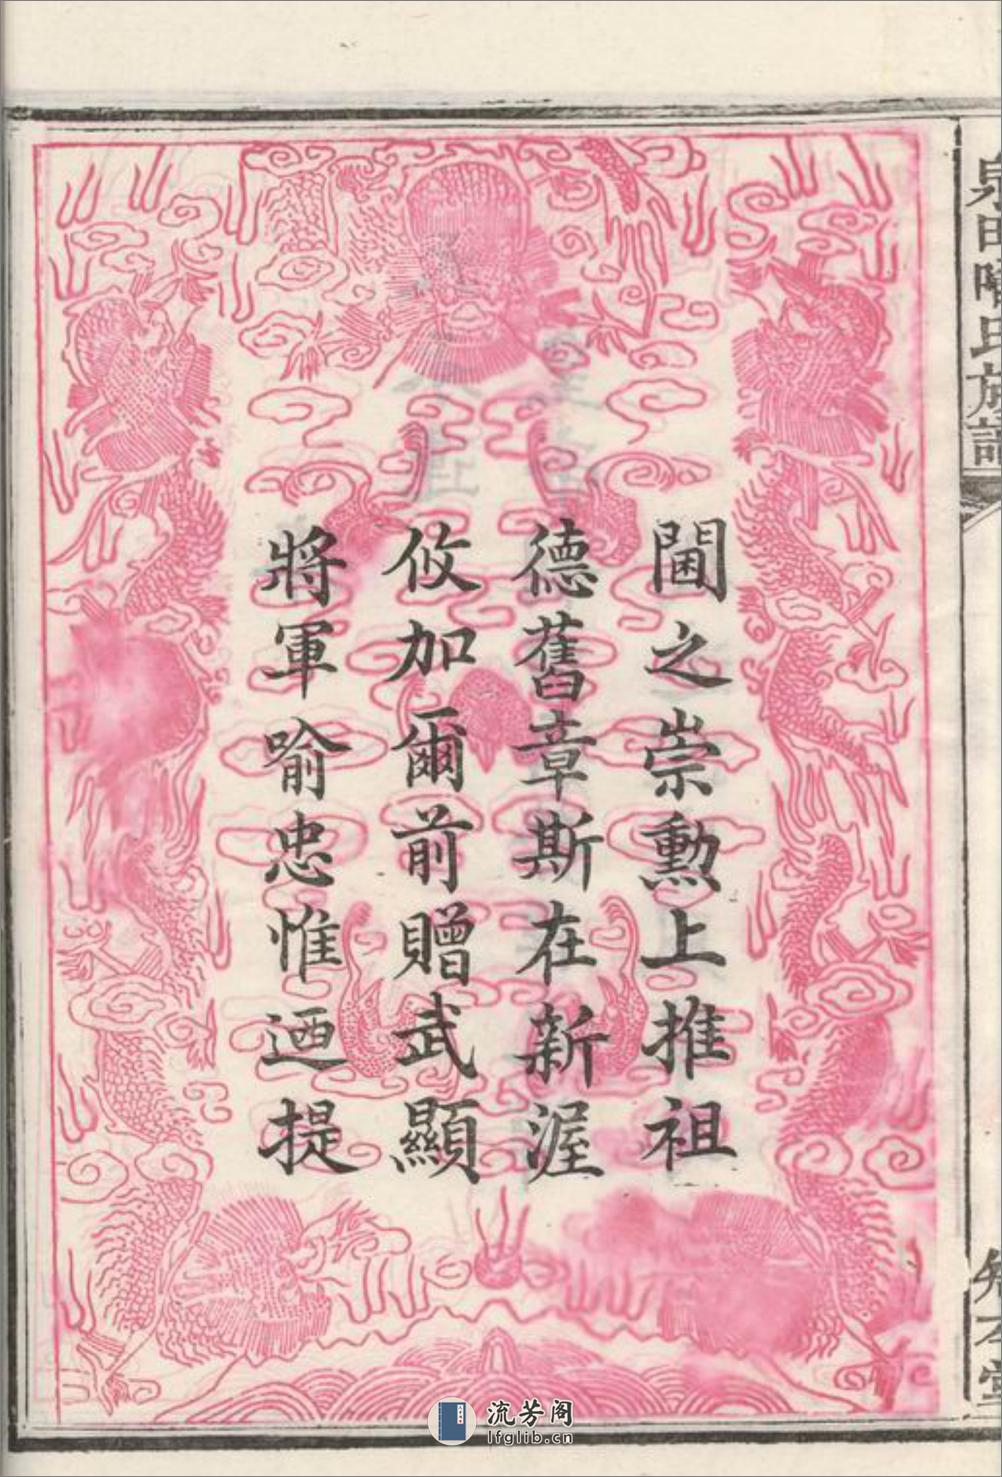 泉田喻氏族譜
閫之崇勳上推祖
德舊章斯在新渥
攸加爾前贈武顯
將軍喻忠惟迺提
流芳阁
lfglib.cn